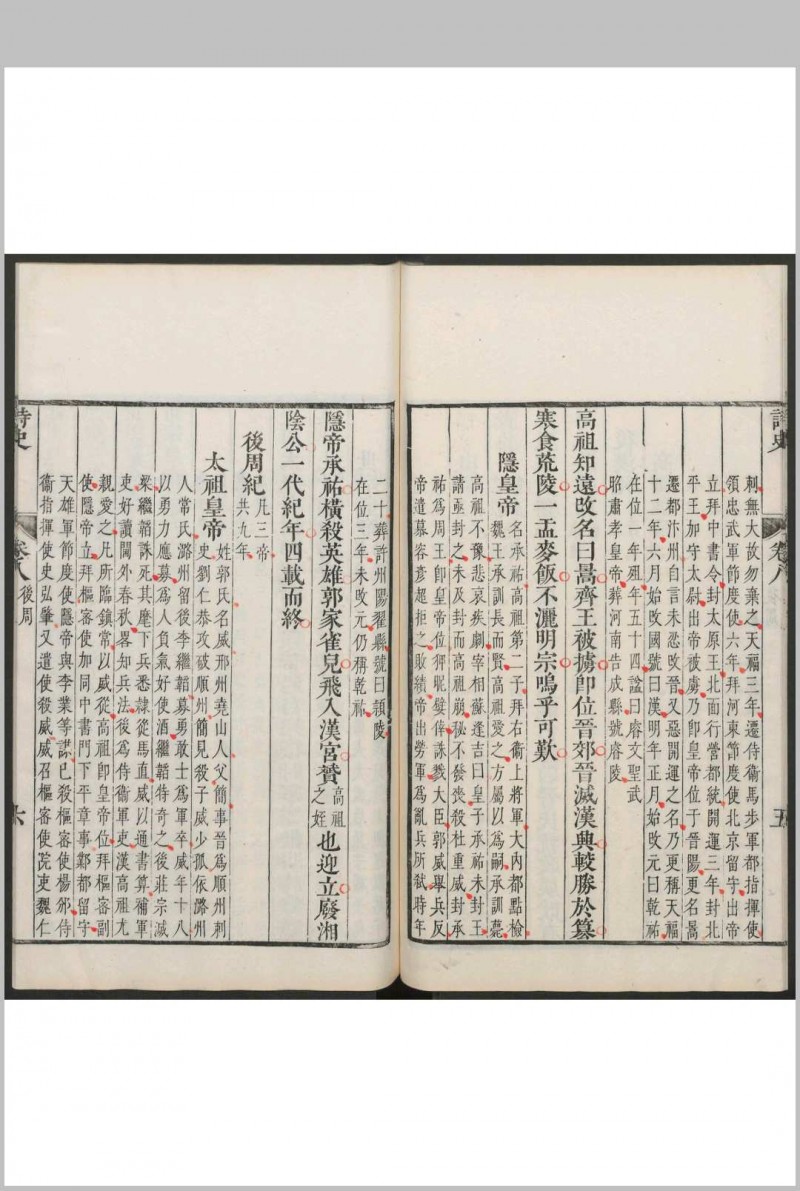 詩史
卷八
五
刺無大故勿棄之天福三年遷侍衞馬步軍都指揮使
領忠武軍節度使六年拜河東節度使北京留守出帝
立拜中書令封太原王北面行營都統開運三年封北
平王加守太尉出帝被虜乃卽皇帝位于晉陽更名暠
遷都汴州自言未忍改晉又惡開運之名乃更稱天福
十二年六月始改國號曰漢明年正月始改元曰乾祐
在位一年殂年五十四諡曰睿文聖武
昭肅孝皇帝葬河南告成縣號睿陵
高祖知遠改名曰暠齊王被擄卽位晉郊晉滅漢興較勝於簒
寒食荒陵一盂麥飯不灑明宗嗚乎可歎
隱皇帝
名承祐高祖第二子拜右衞上將軍大內都點檢
魏王承訓長而賢高祖愛之方屬以爲嗣承訓薨
高祖不豫悲哀疾劇宰相蘇逢吉曰皇子承祐未封王
請亟封之未及封而高祖崩秘不發喪殺杜重威封承
祐爲周王卽皇帝位狎昵嬖倖誅戮大臣郭威舉兵反
帝遣慕容彥超拒之敗績帝出勞軍爲亂兵所弒時年
二十葬許州陽翟縣號曰頴陵
在位三年未改元仍稱乾祐
隱帝承祐橫殺英雄郭家雀兒飛入漢宮贇高祖之姪也迎立廢湘
陰公一代紀年四載而終
後周紀凡三帝共九年
太祖皇帝
姓郭氏名威邢州堯山人父簡事晉爲順州刺
史劉仁恭攻破順州簡見殺子威少孤依潞州
人常氏潞州留後李繼韜募勇敢士爲軍卒威年十八
以勇力應募爲人負氣好使酒繼韜特奇之後莊宗滅
梁繼韜誅死其麾下兵悉隷從馬直威以通書算補軍
吏好讀閫外春秋畧知兵法後爲侍衞軍吏漢高祖尤
親愛之凡所臨鎮常以威從高祖卽皇帝位拜樞密副
使隱帝立拜樞密使加同中書門下平章事鄴都留守
天雄軍節度使隱帝與李業等謀已殺樞密使楊邠侍
衞指揮使史弘肇又遣使殺威威召樞密使院吏魏仁
詩史
卷八
後周
六